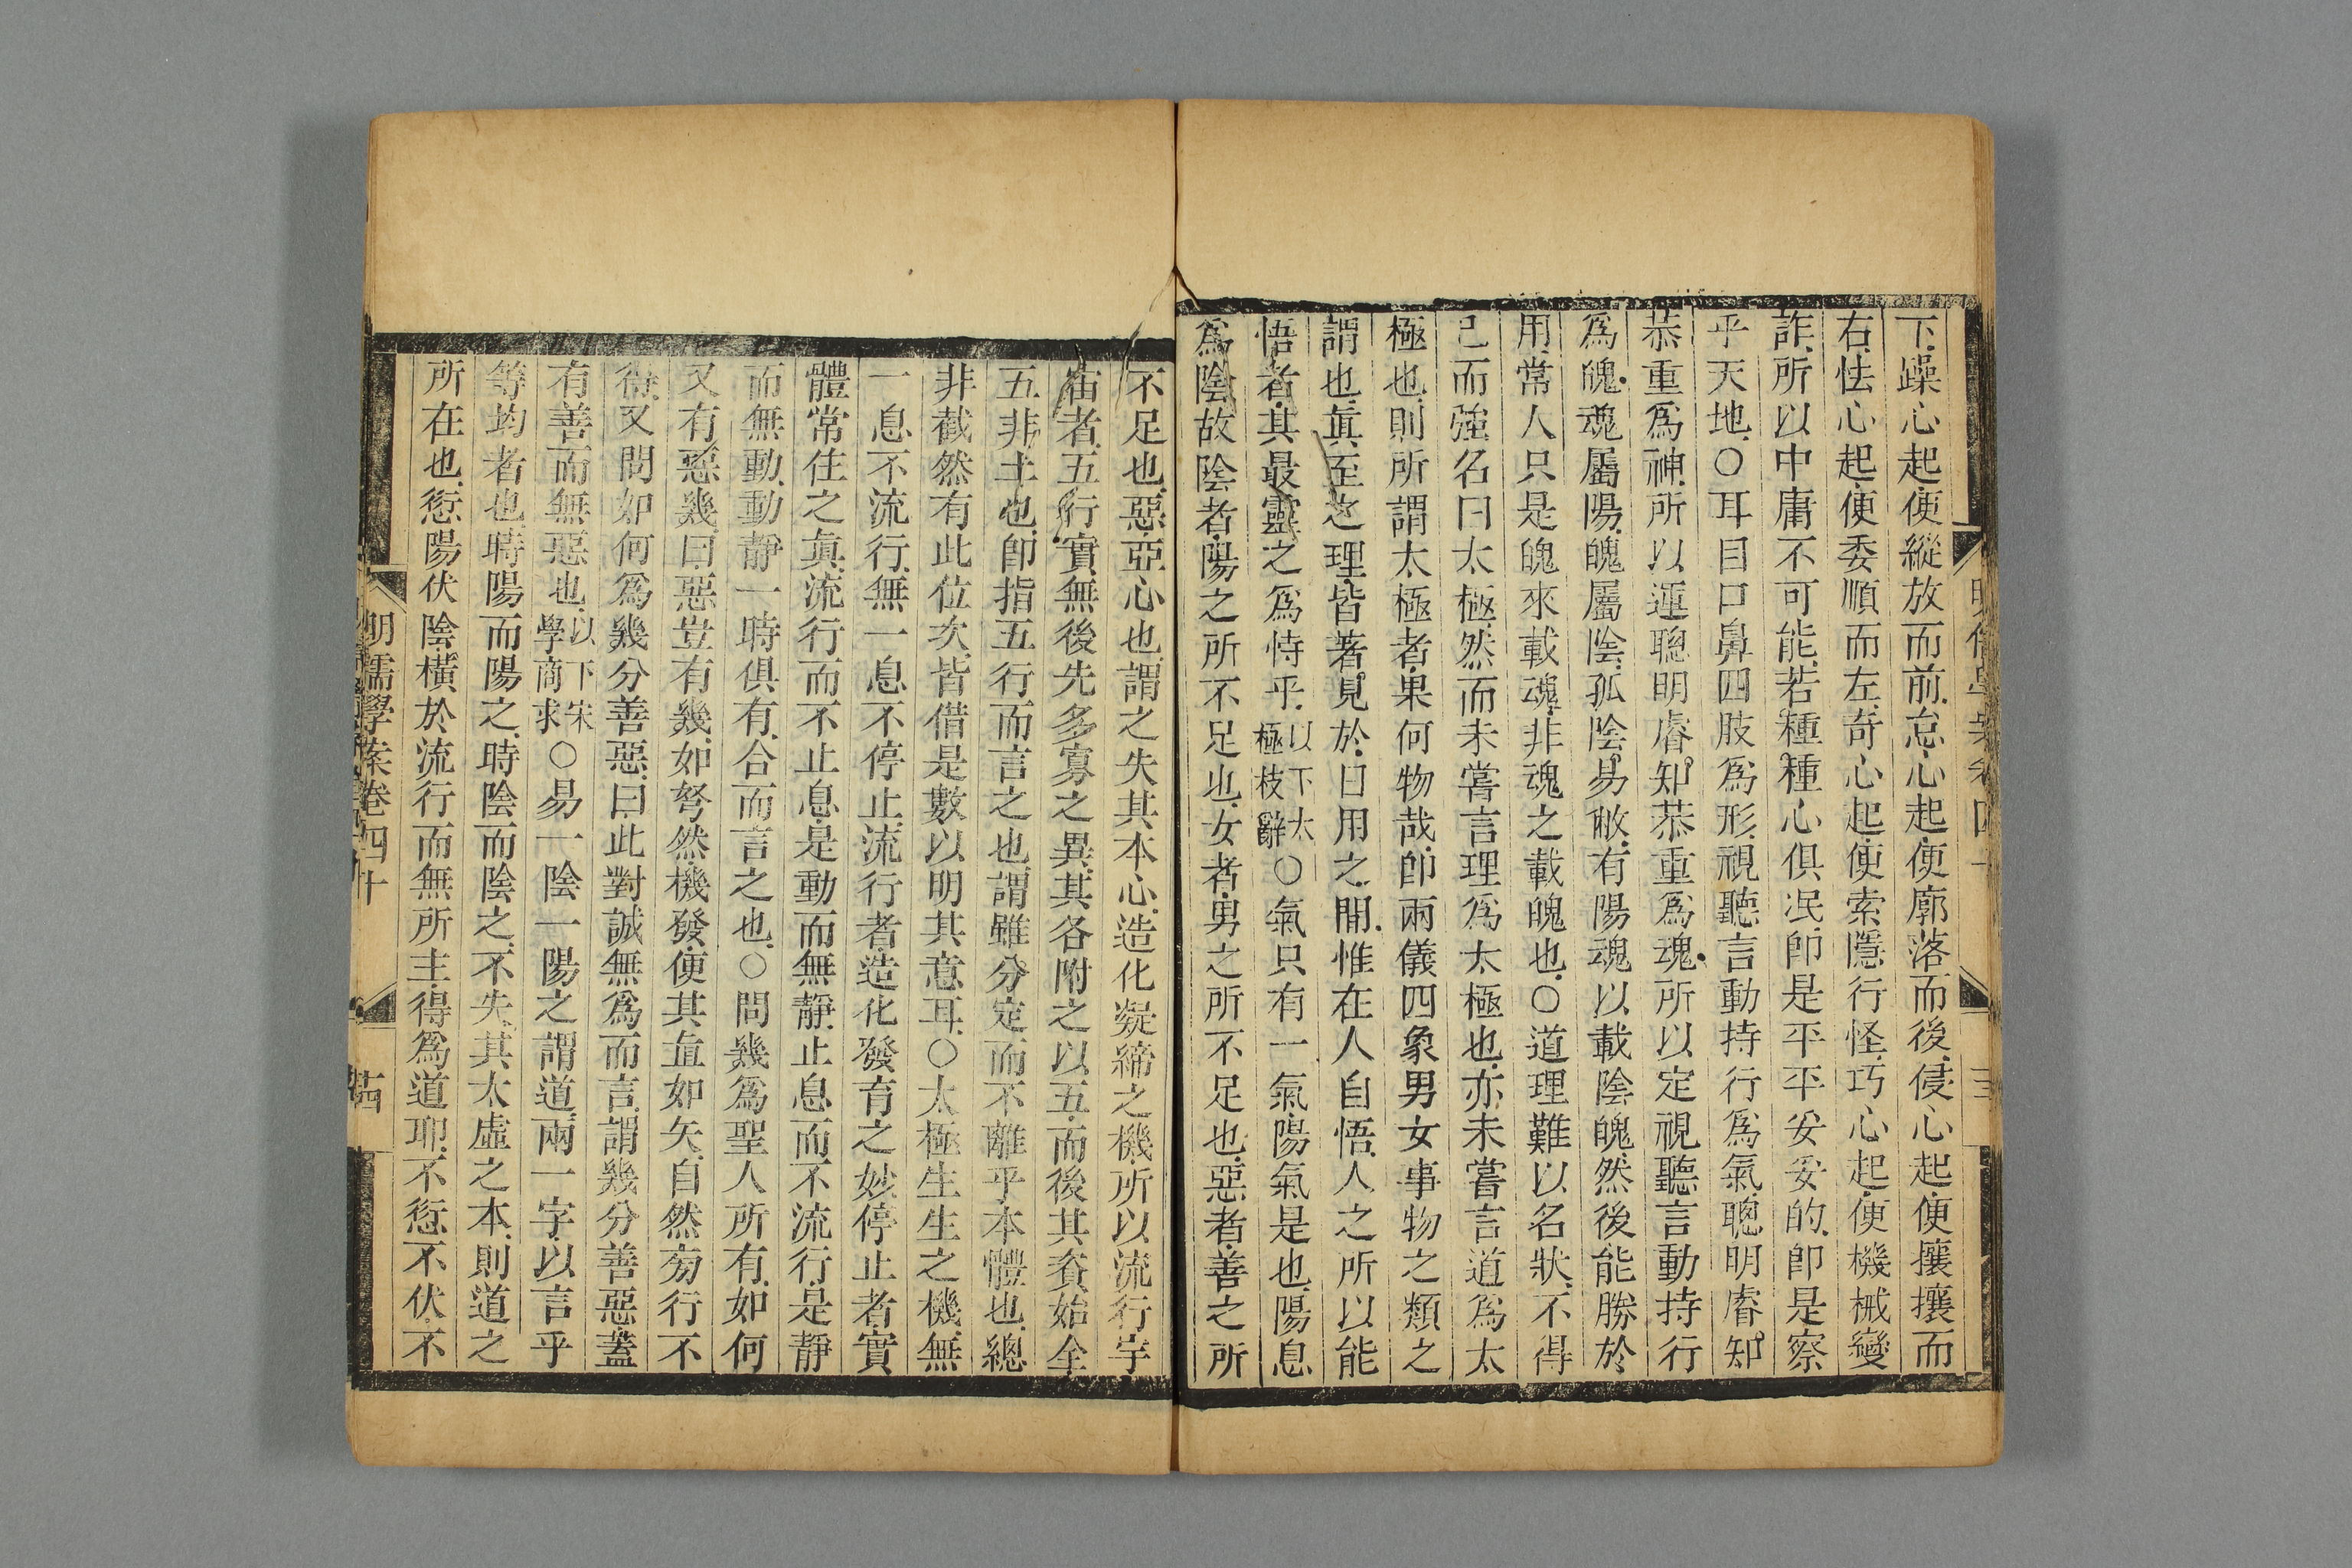 下躁心起便縱放而前怠心起便廓落而後侵心起便攘攘而
右怯心起便委順而左奇心起便索隱行怪巧心起便機械變
詐所以中庸不可能若種種心俱泯卽是平平妥妥的卽是察
乎天地○耳目口鼻四肢爲形視聽言動持行爲氣聰明睿知
恭重爲神所以運聰明睿知恭重爲魂所以定視聽言動持行
爲魄魂屬陽魄屬陰孤陰易敝有陽魂以載陰魄然後能勝於
用常人只是魄來載魂非魂之載魄也○道理難以名狀不得
已而強名曰太極然而未嘗言理爲太極也亦未嘗言道爲太
極也則所謂太極者果何物哉卽兩儀四象男女事物之類之
謂也眞至之理皆著見於日用之閒惟在人自悟人之所以能
悟者其最靈之爲恃乎以下太極枝辭○氣只有一氣陽氣是也陽息
爲陰故陰者陽之所不足也女者男之所不足也惡者善之所
不足也惡亞心也謂之失其本心造化凝締之機所以流行宇
宙者五行實無後先多寡之異其各附之以五而後其資始全
五非土也卽指五行而言之也謂雖分定而不離乎本體也總
非截然有此位次皆借是數以明其意耳○太極生生之機無
一息不流行無一息不停止流行者造化發育之妙停止者實
體常住之眞流行而不止息是動而無靜止息而不流行是靜
而無動動靜一時俱有合而言之也○問幾爲聖人所有如何
又有惡幾曰惡豈有幾如弩然機發便其直如矢自然旁行不
得又問如何爲幾分善惡曰此對誠無爲而言謂幾分善惡蓋
有善而無惡也以下宋學商求○易一陰一陽之謂道兩一字以言乎
等均者也時陽而陽之時陰而陰之不失其太虛之本則道之
所在也愆陽伏陰橫於流行而無所主得爲道耶不愆不伏不
明儒學案卷四十